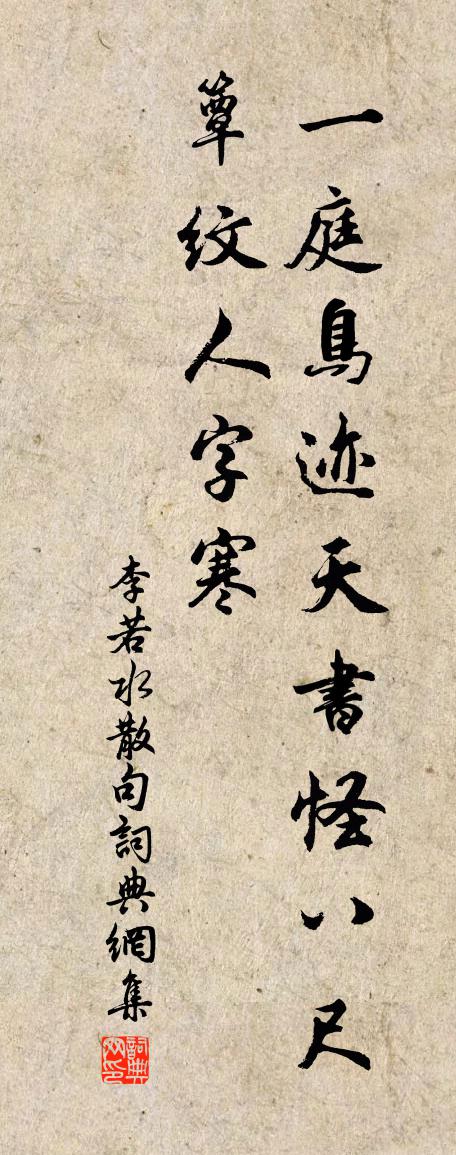 一庭鳥迹天書怪八尺
簟紋人字寒
李若水散句詞典網集
詞典網印